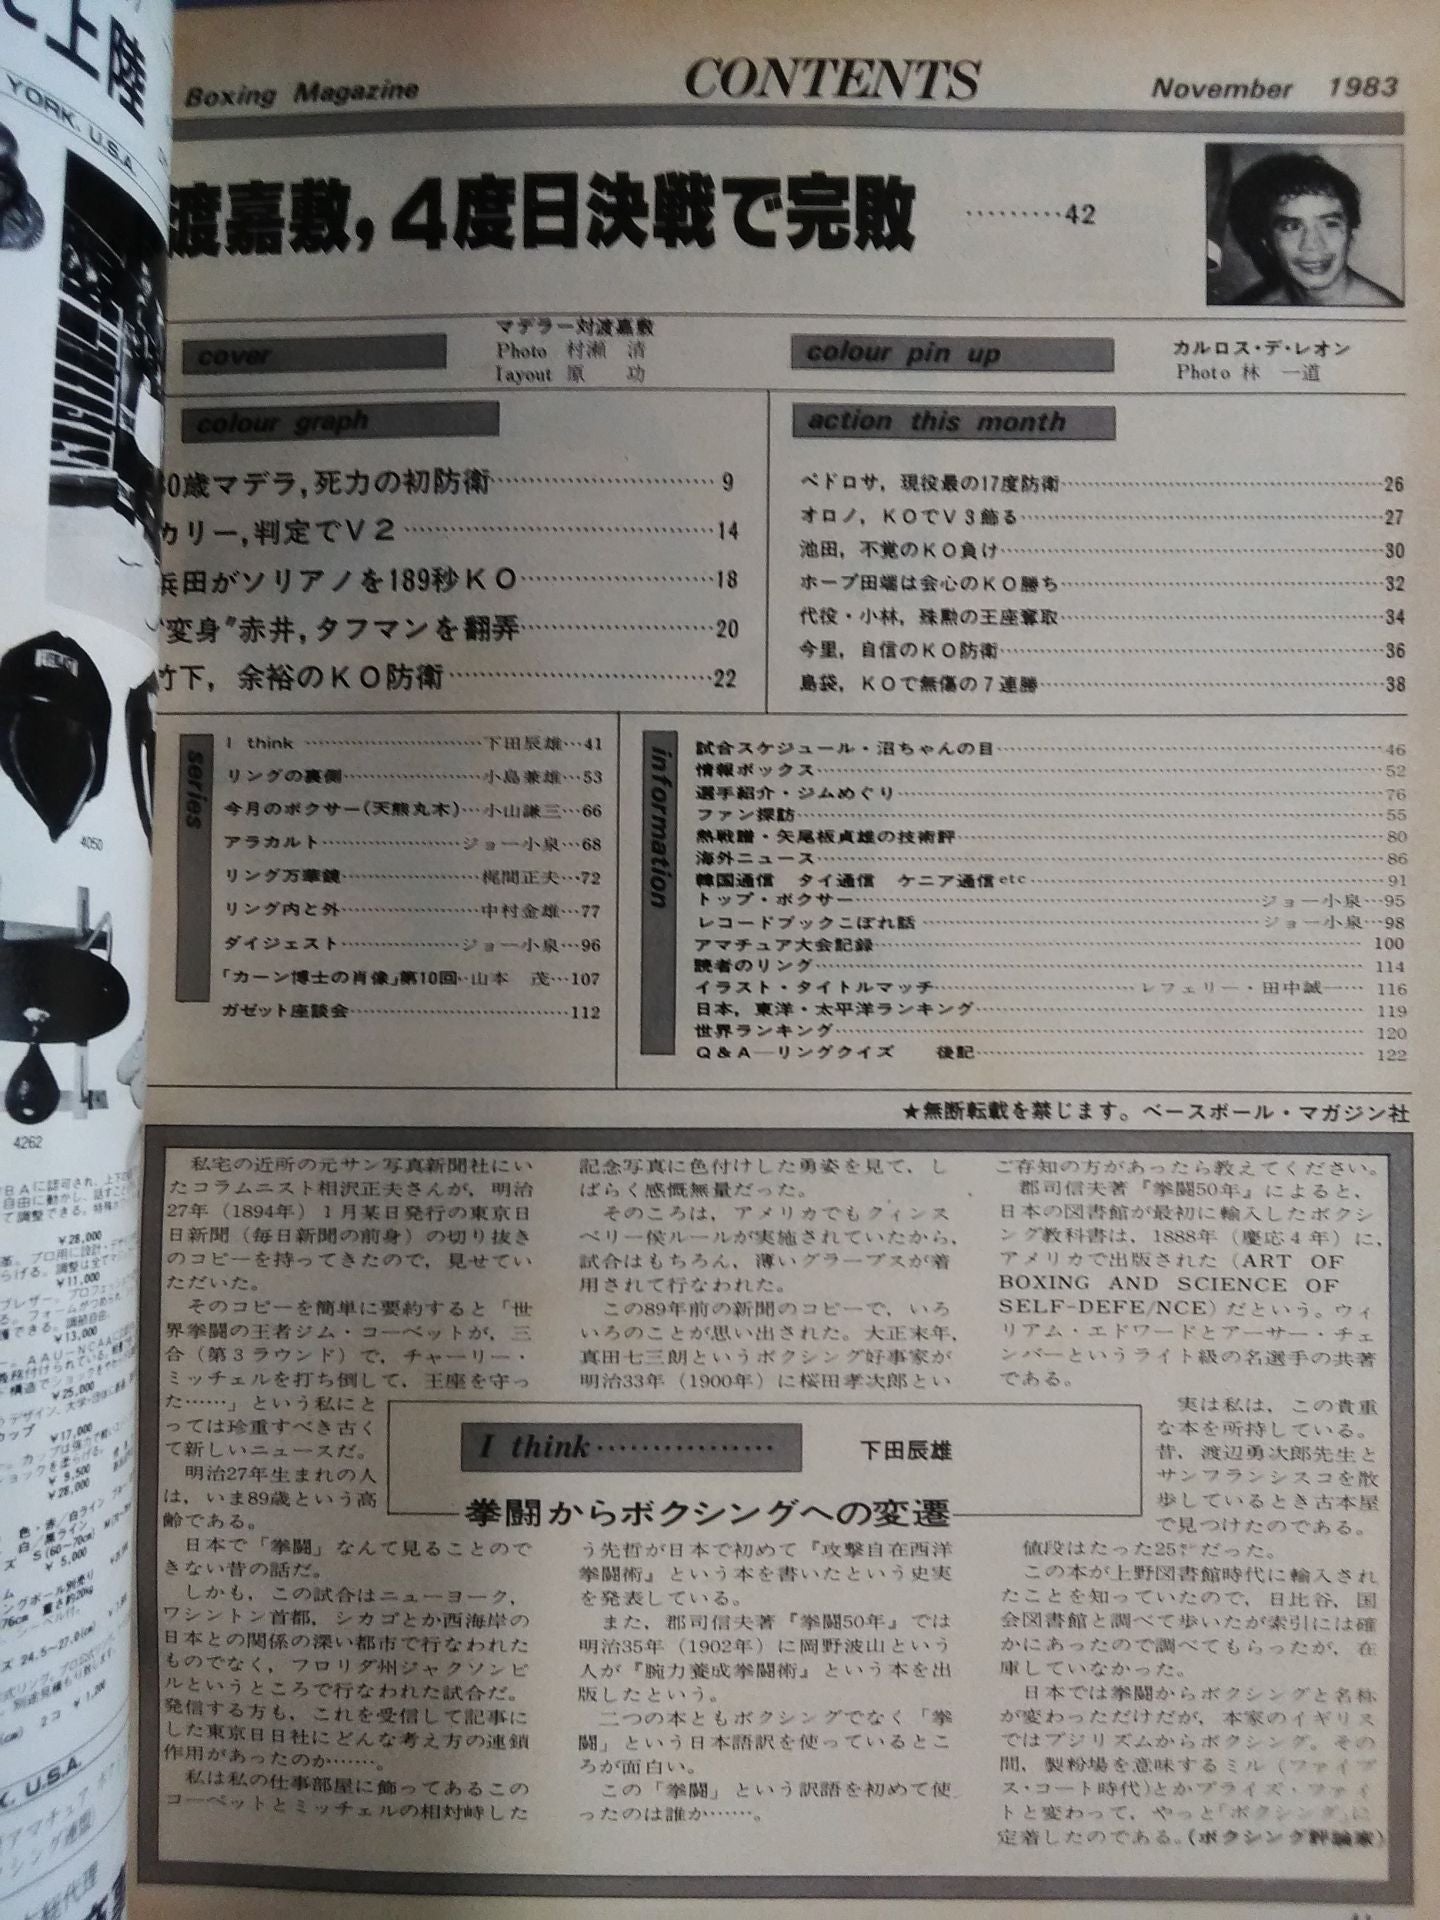 Boxing Magazine
CONTENTS
November 1983
渡嘉敷,4度日決戦で完敗 ………42
cover
マデラー対渡嘉敷
Photo 村瀬 清
layout 原 功
colour pin up
カルロス・デ・レオン
Photo 林 一道
colour graph
30歳マデラ,死力の初防衛……9
カリー,判定でV2……14
浜田がソリアノを189秒KO……18
"変身"赤井,タフマンを翻弄……20
竹下, 余裕のKO防衛……22
action this month
ペドロサ, 現役最の17度防衛……26
オロノ, KOでV3飾る……27
池田, 不覚のKO負け……30
ホープ田端は会心のKO勝ち……32
代役・小林, 殊勲の王座奪取……34
今里, 自信のKO防衛……36
島袋, KOで無傷の7連勝……38
series
I think……下田辰雄…41
リングの裏側……小島兼雄…53
今月のボクサー(天熊丸木)…小山謙三…66
アラカルト……ジョー小泉…68
リング万華鏡……梶間正夫…72
リング内と外……中村金雄…77
ダイジェスト……ジョー小泉…96
「カーン博士の肖像」第10回‥山本 茂…107
ガゼット座談会……112
information
試合スケジュール・沼ちゃんの目……46
情報ボックス……52
選手紹介・ジムめぐり……76
ファン探訪……55
熱戦譜・矢尾板貞雄の技術評……80
海外ニュース……86
韓国通信 タイ通信 ケニア通信etc……91
トップ・ボクサー……ジョー小泉…95
レコードブックこぼれ話……ジョー小泉…98
アマチュア大会記録……100
読者のリング……114
イラスト・タイトルマッチ……レフェリー・田中誠一……116
日本, 東洋・太平洋ランキング……119
世界ランキング……120
Q&A―リングクイズ 後記……122
★無断転載を禁じます。ベースボール・マガジン社
I think……………
下田辰雄
拳闘からボクシングへの変遷
私宅の近所の元サン写真新聞社にい
たコラムニスト相沢正夫さんが, 明治
27年(1894年)1月某日発行の東京日
日新聞(毎日新聞の前身)の切り抜き
のコピーを持ってきたので, 見せてい
ただいた。
そのコピーを簡単に要約すると「世
界拳闘の王者ジム・コーベットが, 三
合(第3ラウンド)で, チャーリー・
ミッチェルを打ち倒して, 王座を守っ
た……」という私にと
っては珍重すべき古く
て新しいニュースだ。
明治27年生まれの人
は, いま89歳という高
齢である。
日本で「拳闘」なんて見ることので
きない昔の話だ。
しかも, この試合はニューヨーク,
ワシントン首都, シカゴとか西海岸の
日本との関係の深い都市で行なわれた
ものでなく, フロリダ州ジャクソンビ
ルというところで行なわれた試合だ。
発信する方も, これを受信して記事に
した東京日日社にどんな考え方の連鎖
作用があったのか……。
私は私の仕事部屋に飾ってあるこの
コーベットとミッチェルの相対峙した
記念写真に色付けした勇姿を見て, し
ばらく感慨無量だった。
そのころは, アメリカでもクィンス
ベリー侯ルールが実施されていたから,
試合はもちろん, 薄いグラーブスが着
用されて行なわれた。
この89年前の新聞のコピーで, いろ
いろのことが思い出された。大正末年,
真田七三朗というボクシング好事家が
明治33年(1900年)に桜田孝次郎とい
う先哲が日本で初めて『攻撃自在西洋
拳闘術』という本を書いたという史実
を発表している。
また, 郡司信夫著『拳闘50年』では
明治35年(1902年)に岡野波山という
人が『腕力養成拳闘術』という本を出
版したという。
二つの本ともボクシングでなく「拳
闘」という日本語訳を使っているとこ
ろが面白い。
この「拳闘」という訳語を初めて使
ったのは誰か……。
ご存知の方があったら教えてください。
郡司信夫著『拳闘50年』によると,
日本の図書館が最初に輸入したボクシ
ング教科書は, 1888年(慶応4年)に,
アメリカで出版された(ART OF
BOXING AND SCIENCE OF
SELF-DEFE/NCE)だという。ウィ
リアム・エドワードとアーサー・チェ
ンバーというライト級の名選手の共著
である。
実は私は, この貴重
な本を所持している。
昔, 渡辺勇次郎先生と
サンフランシスコを散
歩しているとき古本屋
で見つけたのである。
値段はたった25㌣だった。
この本が上野図書館時代に輸入され
たことを知っていたので, 日比谷, 国
会図書館と調べて歩いたが索引には確
かにあったので調べてもらったが, 在
庫していなかった。
日本では拳闘からボクシングと名称
が変わっただけだが, 本家のイギリス
ではプジリズムからボクシング。その
間, 製粉場を意味するミル(ファイブ
ス・コート時代)とかプライズ・ファイ
トと変わって, やっと「ボクシング」に
定着したのである。(ボクシング評論家)
上陸
YORK, U.S.A.
4050
4262
¥28,000
¥11,000
¥13,000
¥25,000
¥17,000
¥9,500
¥28,000
¥5,000
K, U.S.A.